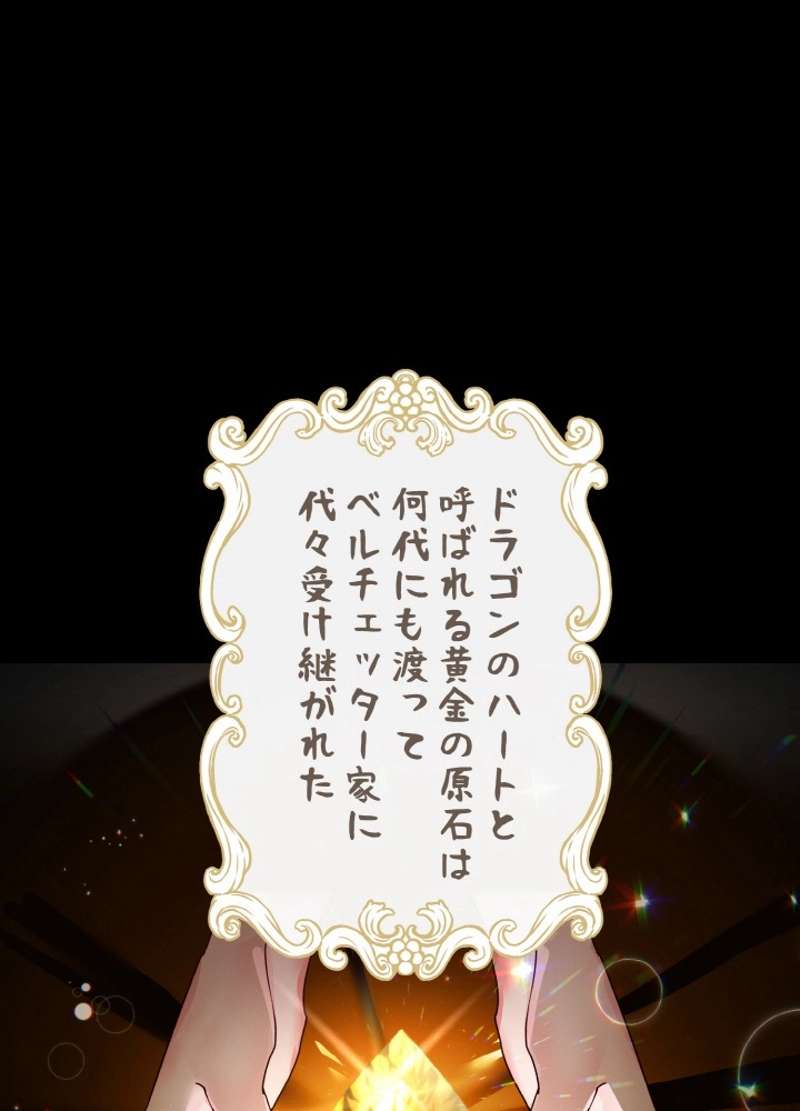 ドラゴンのハートと
呼ばれる黄金の原石は
何代にも渡って
ベルチェッター家に
代々受け継がれた